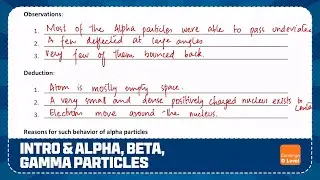 Observations:
1. Most of the Alpha particles were able to pass undeviated
2. A few deflected at large angles
3. Very few of them bounced back.
Deduction:
1. Atom is mostly empty space.
2. A very small and dense positively charged nucleus exists
3. Electrons move around the nucleus.
Reasons for such behavior of alpha particles
INTRO & ALPHA, BETA,
GAMMA PARTICLES
O Level